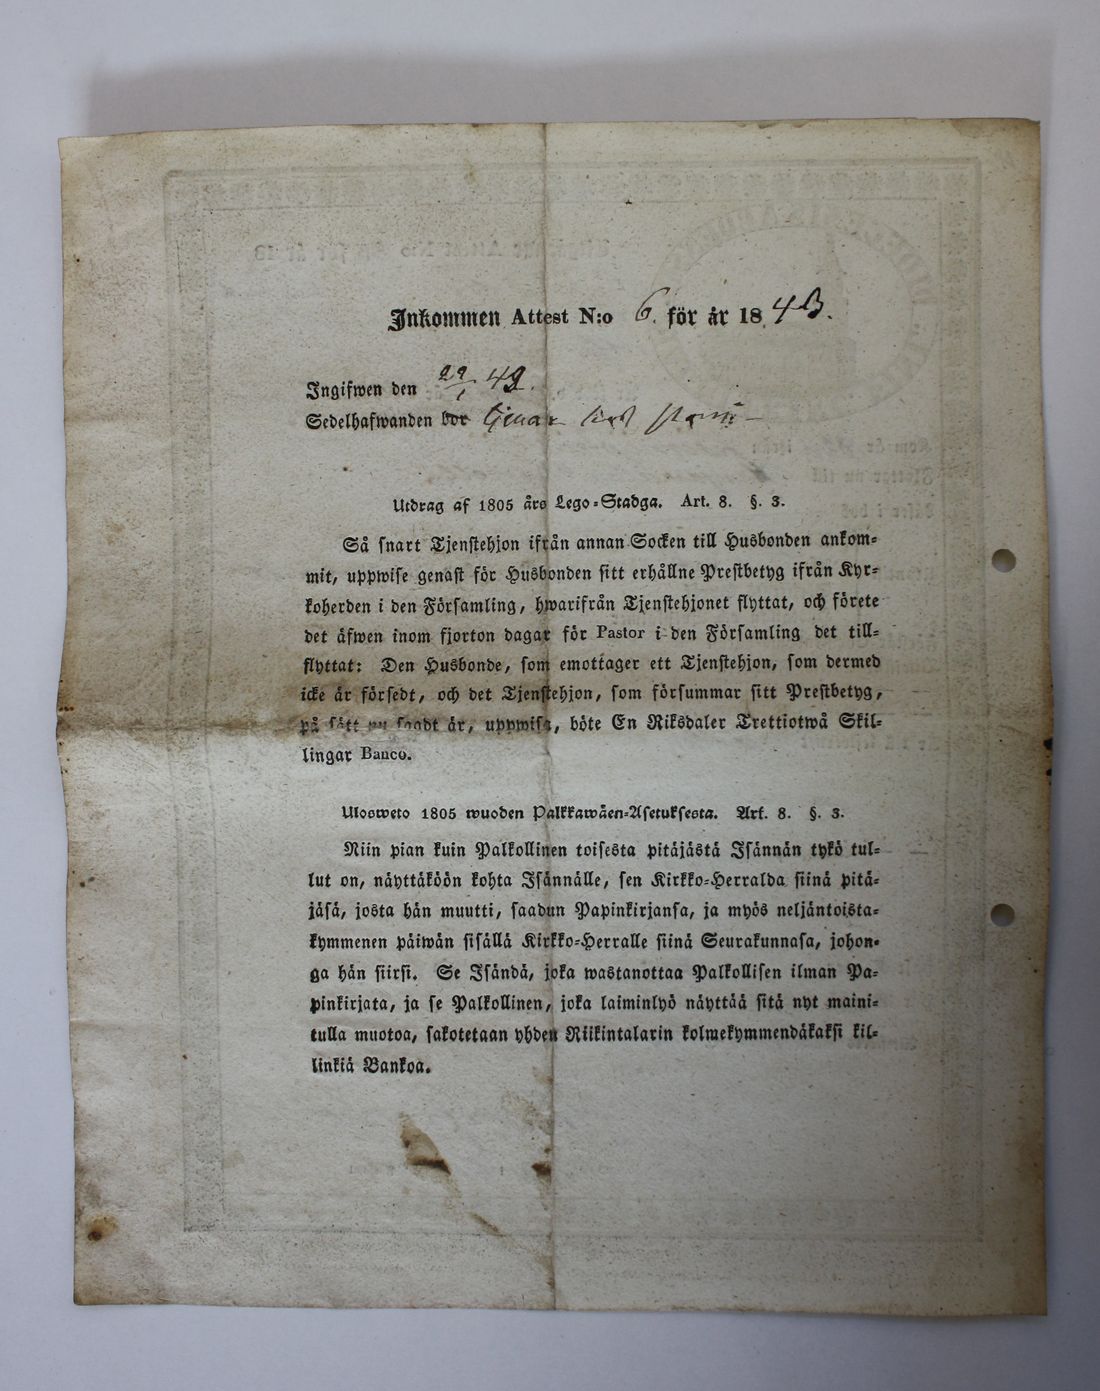 Inkommen Attest N:o 6. för år 1843.
Ingifwen den 29/1 43.
Sedelhafwanden bor
Utdrag af 1805 års Lego-Stadga. Art. 8. §. 3.
Så snart Tjenstehjon ifrån annan Socken till Husbonden ankom-
mit, uppwise genast för Husbonden sitt erhållne Prestbetyg ifrån Kyr-
koherden i den Församling, hwarifrån Tjenstehjonet flyttat, och förete
det äfwen inom fjorton dagar för Pastor i den Församling det till-
flyttat: Den Husbonde, som emottager ett Tjenstehjon, som dermed
icke är försedt, och det Tjenstehjon, som försummar sitt Prestbetyg,
på sätt nu sagdt är, uppwisa, böte En Riksdaler Trettiotwå Skil-
lingar Banco.
Ulosweto 1805 wuoden Palkkawäen-Asetuksesta. Art. 8. §. 3.
Niin pian kuin Palkollinen toisesta pitäjästä Isännän tykö tul-
lut on, näyttäköön kohta Isännälle, sen Kirkko-Herralda siinä pitä-
jäsä, josta hän muutti, saadun Papinkirjansa, ja myös neljäntoista-
kymmenen päiwän sisällä Kirkko-Herralle siinä Seurakunnasa, johon-
ga hän siirsi. Se Isändä, joka wastanottaa Palkollisen ilman Pa-
pinkirjata, ja se Palkollinen, joka laiminlyö näyttää sitä nyt maini-
tulla muotoa, sakotetaan yhden Riikintalarin kolmekymmendäkaksi kil-
linkiä Bankoa.